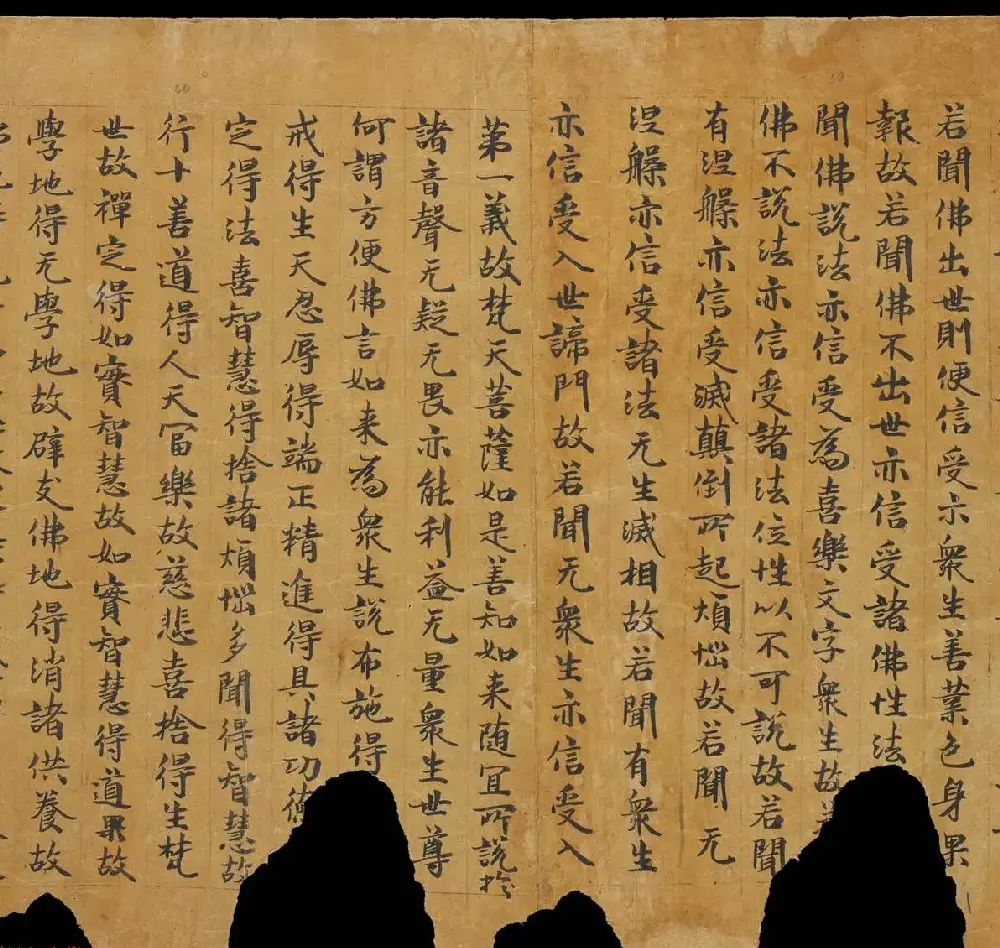 若聞佛出世則便信受示衆生善業色身果
報故若聞佛不出世亦信受諸佛性法
聞佛說法亦信受為喜樂文字衆生故
佛不說法亦信受諸法位性以不可說故若聞
有涅槃亦信受滅顛倒所起煩惱故若聞无
涅槃亦信受諸法无生滅相故若聞有衆生
亦信受入世諦門故若聞无衆生亦信受入
第一義故梵天菩薩如是善知如来随宜所說於
諸音聲无疑无畏亦能利益无量衆生世尊
何謂方便佛言如来為衆生說布施得
戒得生天忍辱得端正精進得具諸功德
定得法喜智慧得捨諸煩惱多聞得智慧故
行十善道得人天冨樂故慈悲喜捨得生梵
世故禪定得如實智慧故如實智慧得道果故
學地得无學地故辟支佛地得消諸供養故